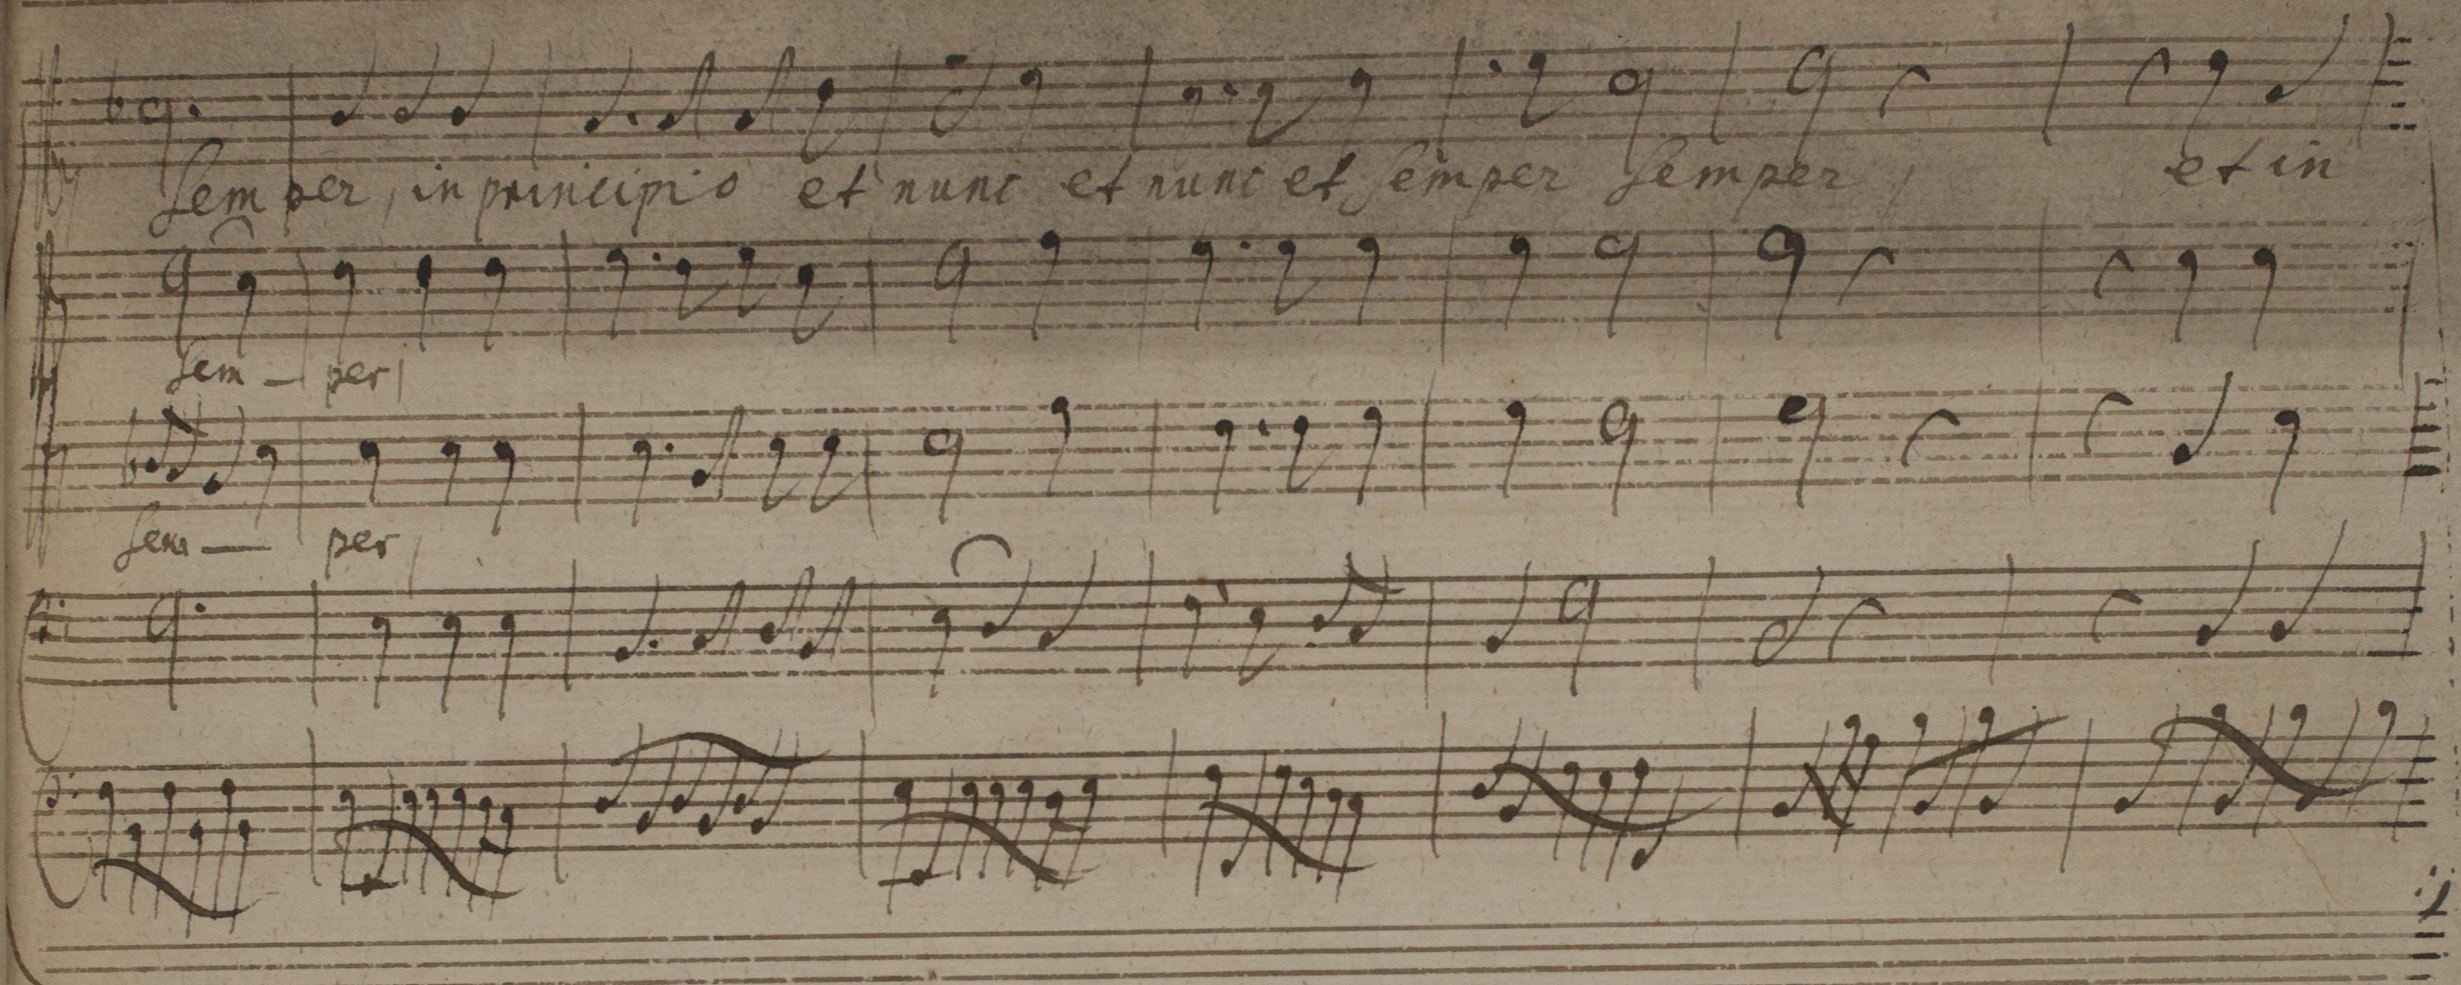 Semper, in principio et nunc et nunc et semper semper, et in
Sem - per,
Sem - per,